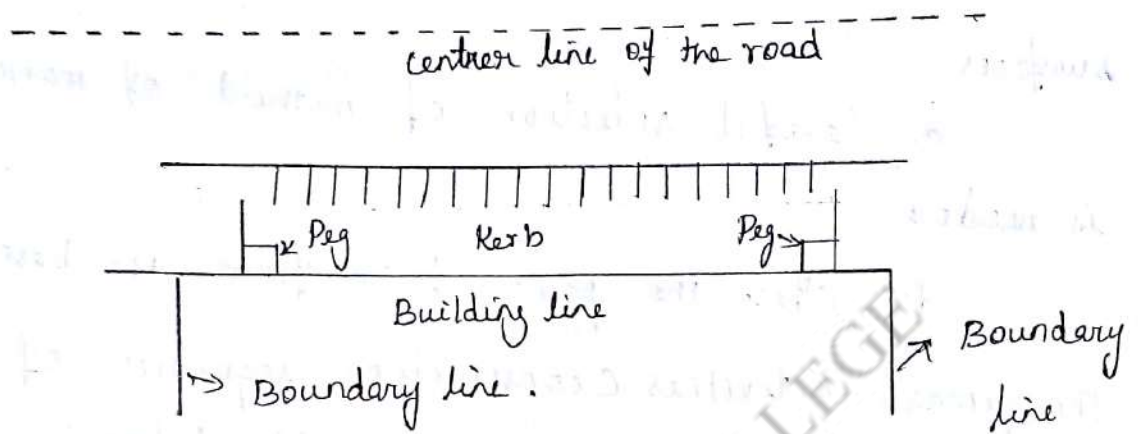 centrer line of the road
Peg Kerb Peg
Building line
Boundary line.
Boundary line
LEGE